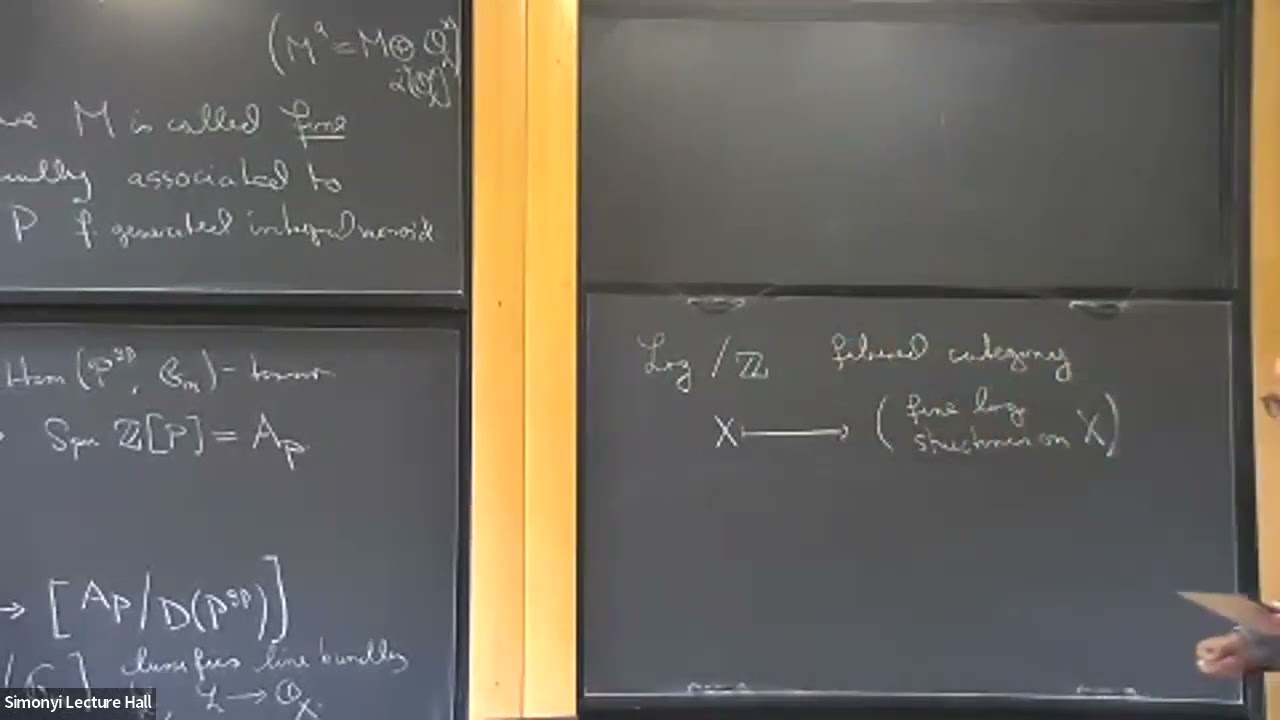 (M^a = M ⊕ O_X^*
M is called fine
associated to
P f. generated integral monoid
Hom(P^gp, G_m)-torsor
Spec Z[P] = A_P
→ [A_P/D(P^gp)]
line bundles
L → O_X
Log / Z fibered category
X ⟼ (fine log
structures on X)
Simonyi Lecture Hall